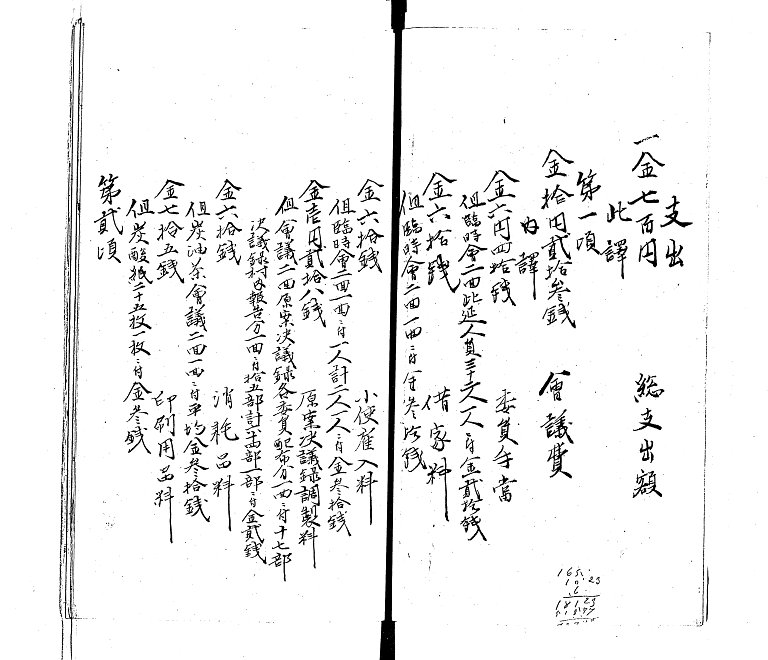 支出
一金七百円 総支出額
此譯
第一項
金拾円貳拾叁錢 會議費
内譯
金六円四拾錢 委員手當
但臨時會二回此延人員三十二人一人ニ付金貳拾錢
金六拾錢 借家料
但臨時會二回一回ニ付金叁拾錢
金六拾錢 小使雇入料
但臨時會二回一回ニ付一人計二人一人ニ付金叁拾錢
金壱円貳拾八錢 原案决議録調製料
但會議二回原案决議録各委員配布分一回ニ付十七部
决議録村内報告分一回ニ付拾五部計 部一部ニ付金貳錢
金六拾錢 消耗品料
但炭油茶會議二回一回ニ付平均金叁拾錢
金七拾五錢 印刷用品料
但炭酸紙二十五枚一枚ニ付金叁錢
第貳項